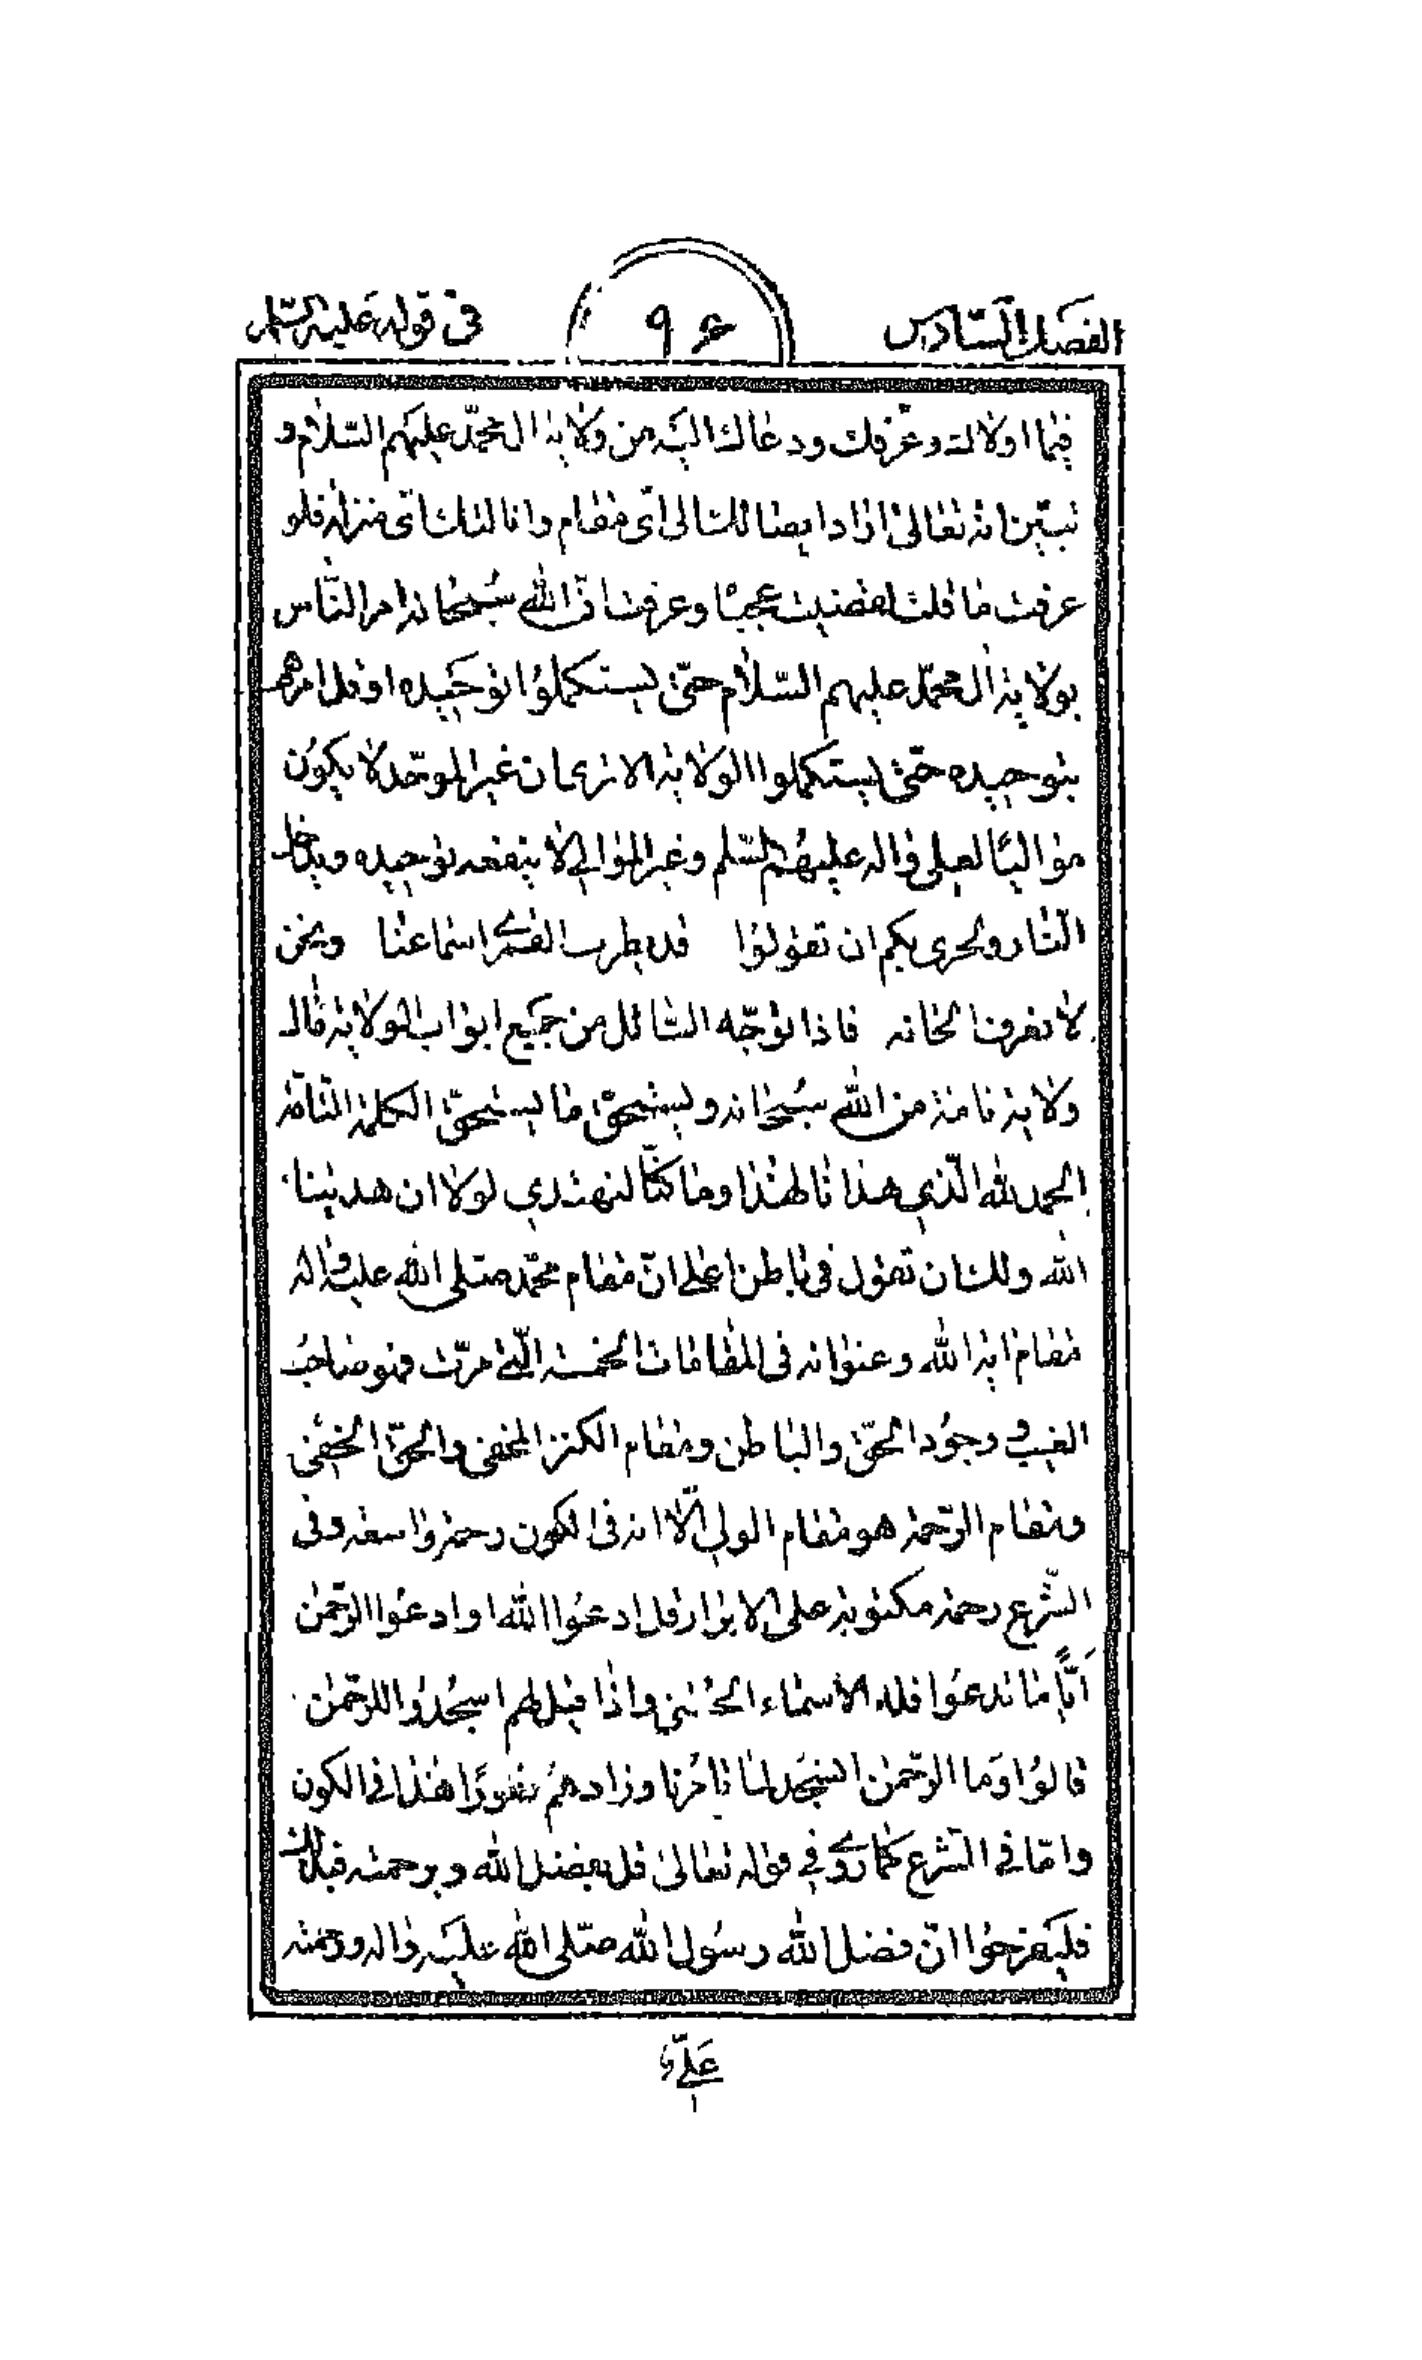 الفصل السّادس ٩۶ في قوله عليه السّلم
فيما اولاك وعرّفك ودعاك اليه من ولاية ال محمّد عليهم السّلام و
تبيّن انه تعالى اراد ايصالك الى اىّ مقام وانالتك اىّ منزلة فلو
عرفت ما قلت لقضيت عجبًا وعرفت انّ الله سُبحانه امر النّاس
بولاية ال محمّد عليهم السّلام حتّى يستكملوا توحيده او قل امرهم
بتوحيده حتّى يستكملوا الولاية الا ترى ان غير الموحّد لا يكون
مواليًا لعلى واله عليهم السّلم وغير الموالي لا ينفعه توحيده ويدخل
النّار والحرى بكم ان تقولوا قد يطرب القمرى اسماعنا ونحن
لا نعرف الحانه فاذا توجّه السّائل من جميع ابواب الولاية قال
ولاية تامة من الله سبحانه ويستحقّ ما يستحقّ الكلمة التّامّة
الحمد لله الّذي هدانا لهذا وما كنّا لنهتدي لولا ان هدينا
الله ولك ان تقول في باطن اعلى انّ مقام محمّد صلّى الله عليه واله
مقام اية الله وعنوانه فى المقامات الخمسة الّتى مرّت فهو صاحب
الغيب و وجود الحقّ والباطن ومقام الكنز المخفى والحقّ الخفىّ
ومقام الرّحمة هو مقام الولي الّا انه فى الكون رحمة واسعة وفى
الشّرع رحمة مكتوبة على الابرار قل ادعوا الله او ادعوا الرّحمن
ايًّا ما تدعوا فله الاسماء الحسنى واذا قيل لهم اسجدوا للرّحمن
قالوا وما الرّحمن انسجد لما تأمرنا وزادهم نفورًا هذا في الكون
وامّا في الشّرع فكما روى في قوله تعالى قل بفضل الله وبرحمته فبذلك
فليفرحوا انّ فضل الله رسول الله صلّى الله عليه واله ورحمته
علىّ